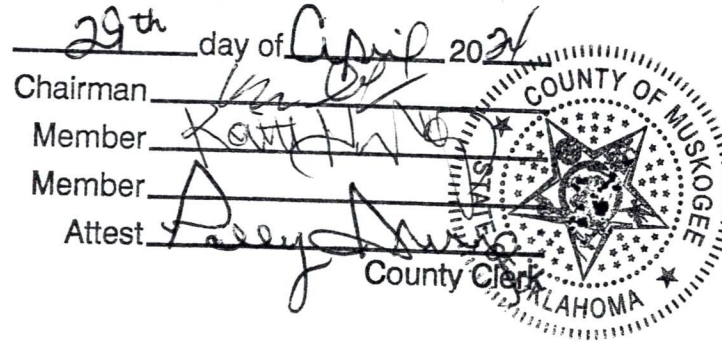 29th day of April 2024
Chairman
Member
Member
Attest
County Clerk
COUNTY OF MUSKOGEE
STATE OF OKLAHOMA